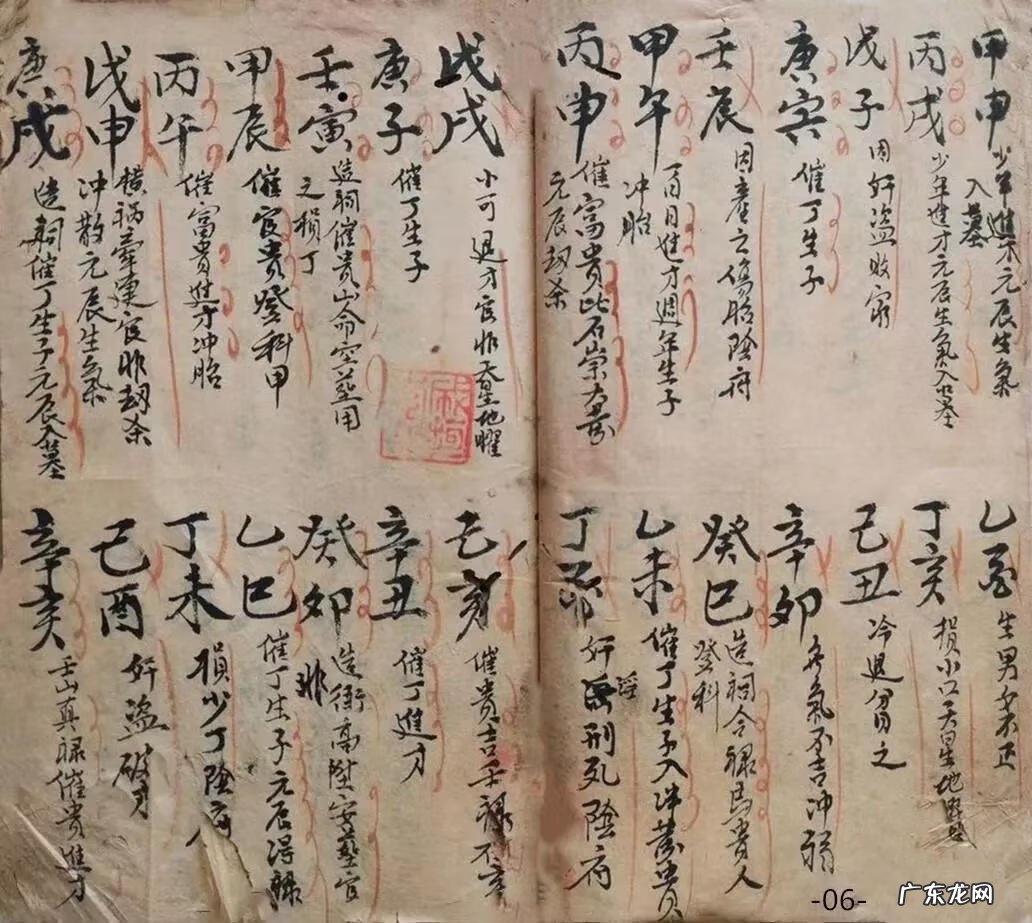 甲申 少年進才元辰生氣
入墓
丙戌 少年進才元辰生氣入墓
戊子 因奸盜敗家
庚寅 催丁生子
壬辰 因產之傷胎陰府
甲午 百日進才週年生子
冲胎
丙申 催富貴比石崇大發
元辰劫杀
乙酉 生男女不正
丁亥 損小口天星地曜
己丑 冷退分之
辛卯 冬氣不吉冲弱
癸巳 造祠合祿馬貴人
登科
乙未 催丁生子入冲黃貴
丁酉 奸淫刑死陰府
戊戌 小可退才官非天星地曜
庚子 催丁生子
壬寅 造祠催貴山命空葬用
之損丁
甲辰 催官貴登科甲
丙午 催富貴進才冲胎
戊申 橫祸牽連官非劫杀
冲散元辰生氣
庚戌 造祠催丁生子元辰入墓
己亥 催貴吉壬祿不守
辛丑 催丁進才
癸卯 造衙高陞安葬官
非
乙巳 催丁生子元辰得祿
丁未 損少丁陰府
己酉 奸盜破才
辛亥 壬山真祿催貴進才
-06-
广东龙网